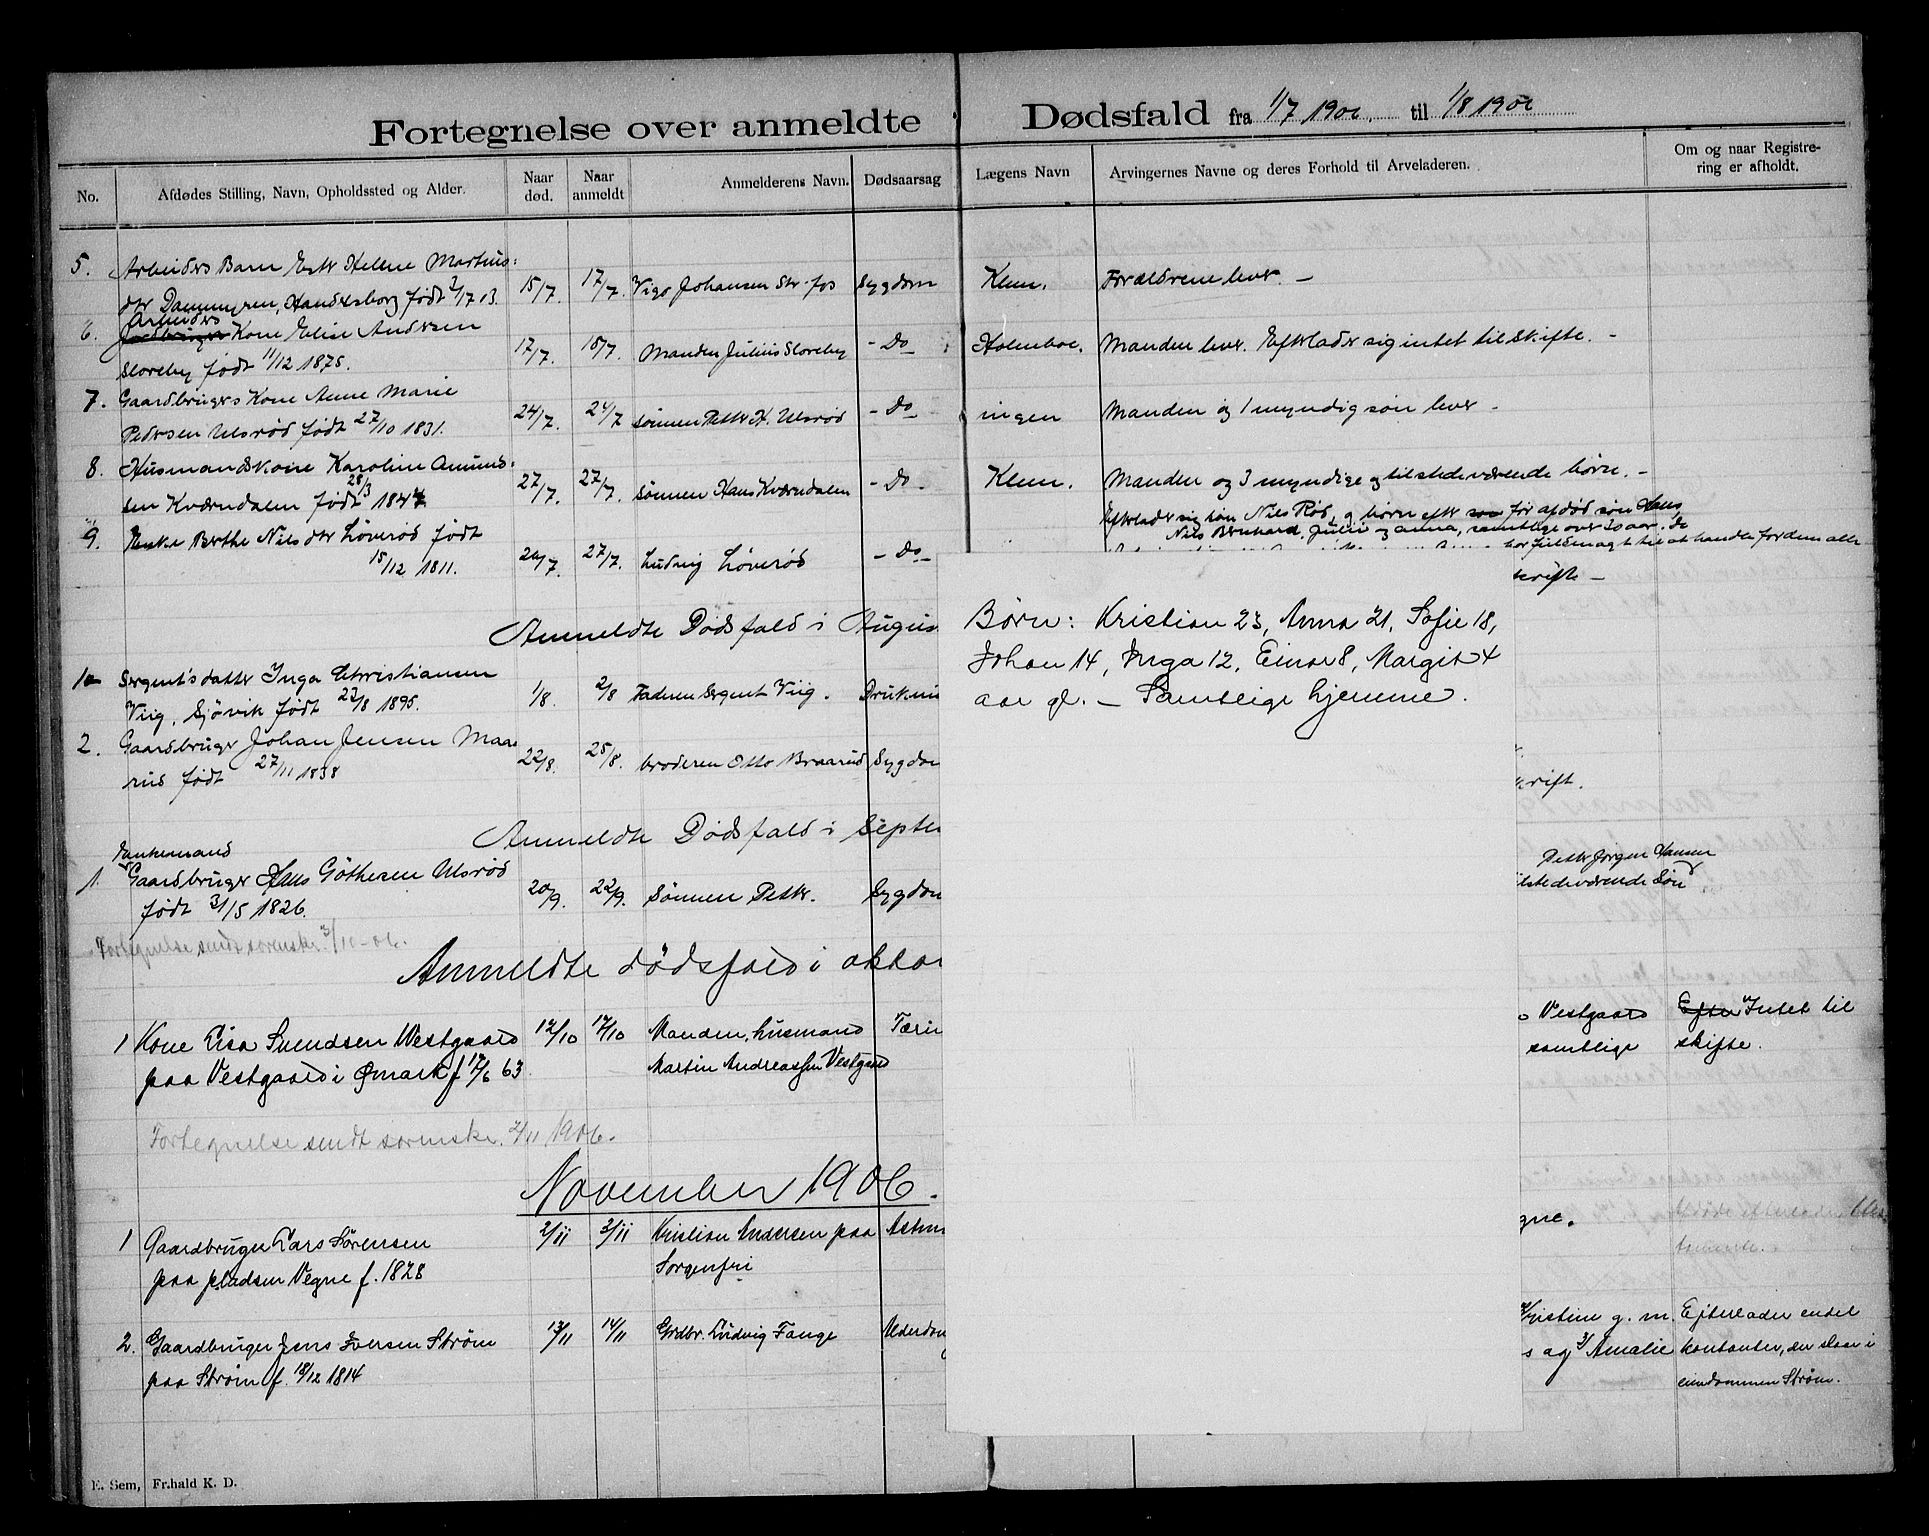 Fortegnelse over anmeldte Dødsfald fra 1/7 1906 til 1/8 1906
No. Afdødes Stilling, Navn, Opholdssted og Alder. Naar død. Naar anmeldt Anmelderens Navn. Dødsaarsag Lægens Navn Arvingernes Navne og deres Forhold til Arveladeren. Om og naar Registrering er afholdt.
5. Arbeiders Barn Ester Helene Martins:
dtr Dammyren, født 15/7. 17/7. Vigo Johansen Sygdom Klem. Forældrene lever. –
Arbeiders
6. Jordbruger Kone Elise Andersen
Sloreby født 11/12 1878. 17/7. 18/7. Manden Julius Sloreby – Do Holmboe. Manden lever. Efterlader sig intet til skifte. –
7. Gaardbrugers Kone Anne Marie
Pedersen Ulsrød født 27/10 1831. 24/7. 24/7 Sønnen Petter H. Ulsrød – Do ingen Manden og 1 myndig søn lever –
8. Husmandskone Karoline Amund:
sen Kværndalen født 28/3 1844 27/7. 27/7. Sønnen Hans Kværndalen – Do – Klem. Manden og 3 myndige og tilstedeværende børn. –
9. Enke Berthe Nilsdtr Løverød født
15/12 1811. 26/7. 27/7. Ludvig Løverød – Do –
Efterlader sig søn Nils Rød, og børn efter før afdød søn Hans
Nils Bernhard, Julie og Anna, samtlige over 20 aar. de
har fuldmagt til at handle for dem alle
skifte –
Anmeldte Dødsfald i Augus
1 Sergent's datter Inga Christiansen
Viig, Sjøvik født 22/8 1895. 1/8. 2/8 Faderen Sergent Viig. Drukni
2. Gaardbruger Johan Jensen Maa
rud født 27/11 1838 22/8. 25/8. broderen Otto Braarud Sygdom
Børn: Kristian 23, Anna 21, Sofie 18,
Johan 14, Inga 12, Einar 8, Margit 4
aar gl. – Samtlige hjemme.
skrift.
Anmeldte Dødsfald i Septe
Enkemand
1. Gaardbruger Hans Gøthesen Ulsrød
født 31/5 1826. 20/9. 22/9. Sønnen Petter. Sygdom
Petter Jørgen Hansen
ilstedeværende Søn
Fortegnelse sendt sorenskr. 2/10-06.
Anmeldte dødsfald i okto
1 Kone Lisa Svendsen Westgaard 12/10 17/10 Manden, husmand Tærin Vestgaard Efter Intet til
paa Vestgaard i Ømark f 17/6 63 Martin Andreassen Vestgaard samtlige skifte.
Fortegnelse sendt sorenskr. 2/11 1906.
November 1906.
1 Gaardbruger Lars Sørensen 2/11 3/11 Kristian Andersen paa Astma gne. Afdøde efterlader
paa pladsen Vegne f. 1828 Sorgenfri
2. Gaardbruger Jens Iversen Strøm 13/11 14/11 Grdbr. Ludvig Tange Alderdom Kristine g. m. Efterlader endel
paa Strøm f. 18/12 1814 s og 3/ Amalie kontanter, der staar i
eiendommen Strøm.
E. Sem, Fr.hald K. D.